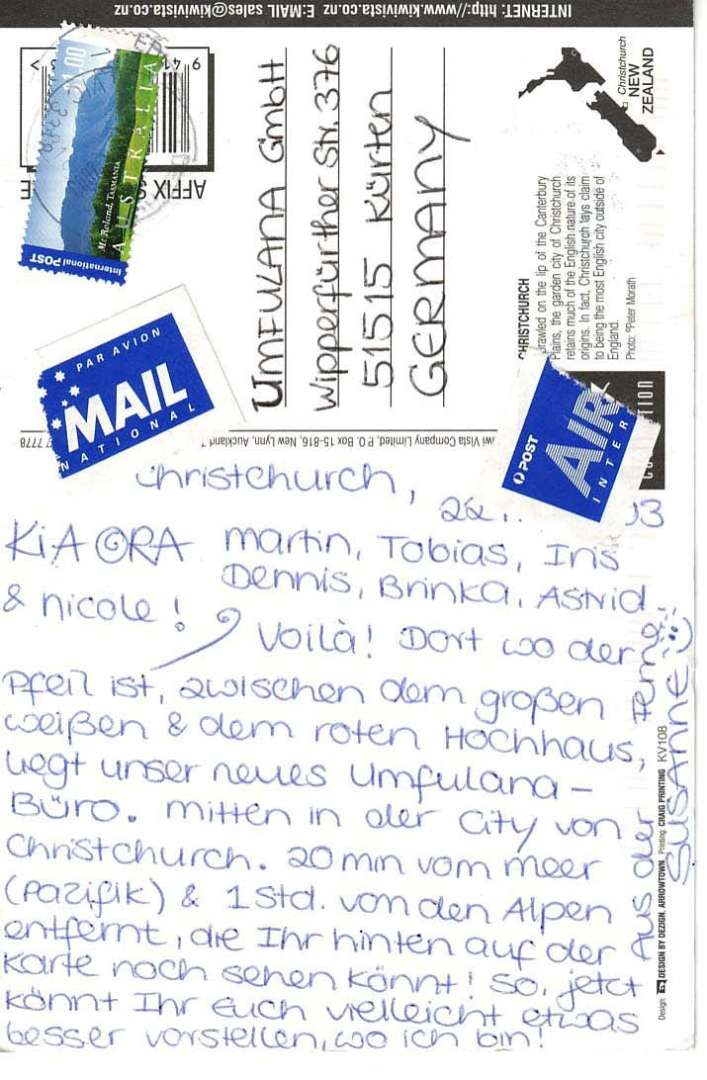 INTERNET: http://www.kiwivista.co.nz E-MAIL sales@kiwivista.co.nz
1.00
Mt Roland, TASMANIA
AUSTRALIA
International POST
AFFIX S
PAR AVION
MAIL
NATIONAL
UMFULANA GmbH
Wipperfürther Str. 376
51515 Kürten
GERMANY
Christchurch
NEW
ZEALAND
CHRISTCHURCH
rawled on the lip of the Canterbury
Plains, the garden city of Christchurch
retains much of the English nature of its
origins. In fact, Christchurch lays claim
to being the most English city outside of
England.
Photo: ©Peter Morath
iwi Vista Company Limited, P.O. Box 15-816, New Lynn, Auckland 7
7 7778
POST
AIR
INTER
Christchurch,
22. 03
KiA ORA Martin, Tobias, Iris
Dennis, Brinka, Astrid
& Nicole!
Voilà! Dort wo der
Pfeil ist, zwischen dem großen
weißen & dem roten Hochhaus,
liegt unser neues Umfulana-
Büro. Mitten in der City von
Christchurch. 20 min vom Meer
(Pazifik) & 1 Std. von den Alpen
entfernt, die Ihr hinten auf der
Karte noch sehen könnt! So, jetzt
könnt Ihr Euch vielleicht etwas
besser vorstellen, wo ich bin!
Aus der Ferne
SUSANNE
Design: DESIGN BY DEZIGN, ARROWTOWN Printing: CRAIG PRINTING KV108